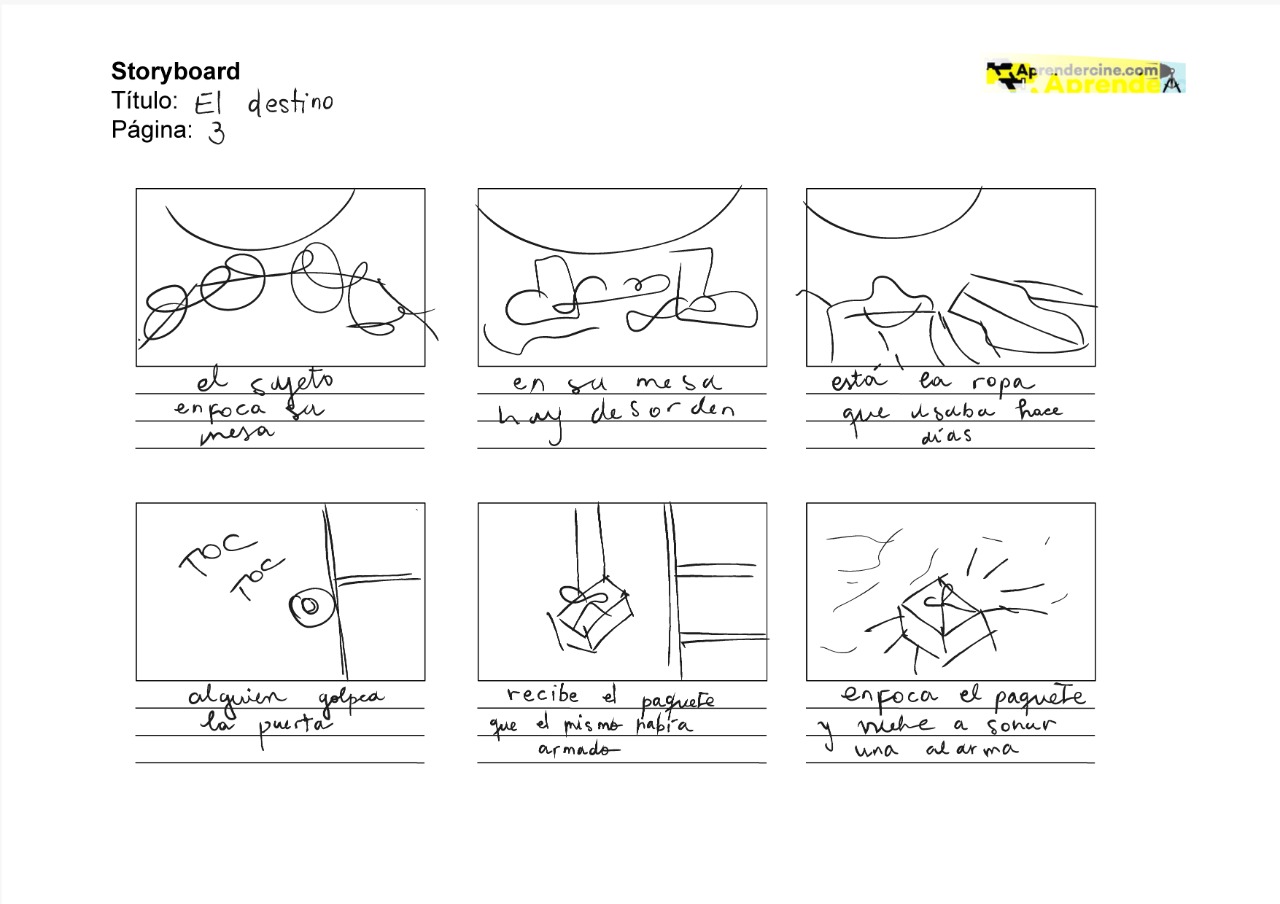 Storyboard
Título: El destino
Página: 3
Aprendercine.com
Aprende
el sujeto
enfoca su
mesa
en su mesa
hay desorden
está la ropa
que usaba hace
días
TOC
TOC
alguien golpea
la puerta
recibe el paquete
que el mismo había
armado
enfoca el paquete
y vuelve a sonar
una alarma